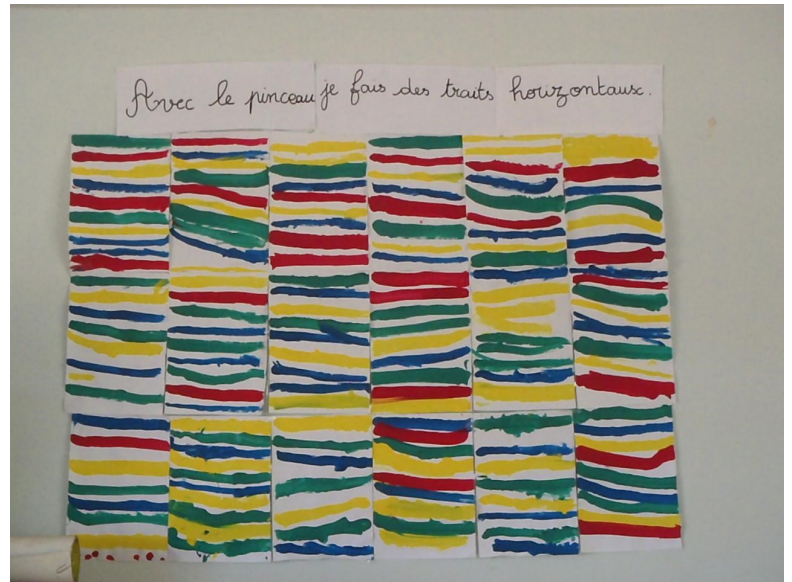 Avec le pinceau je fais des traits horizontaux.